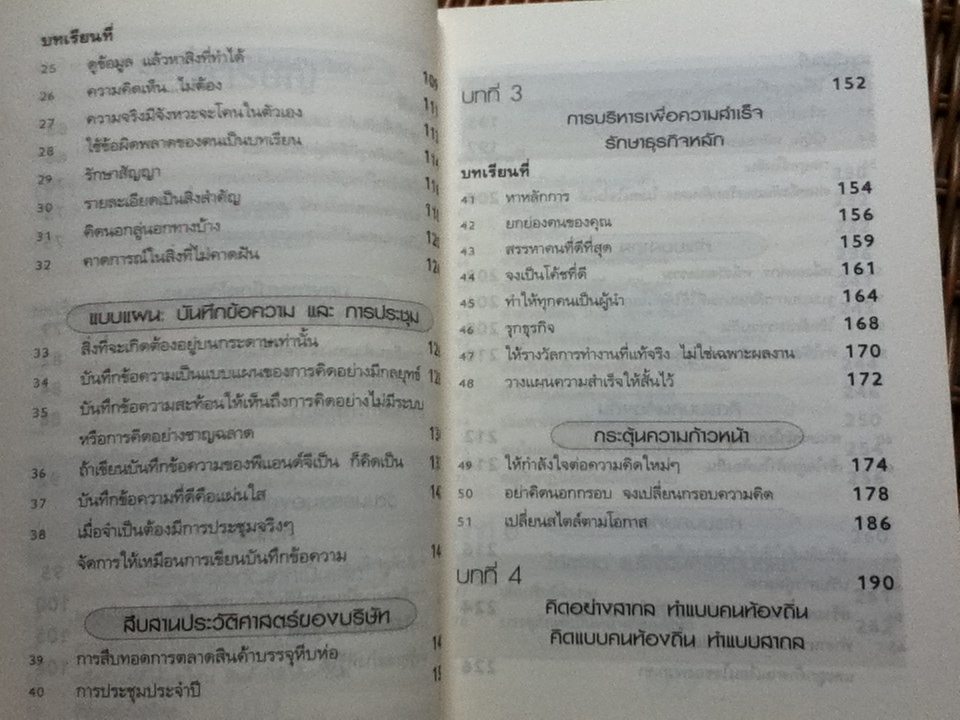 บทเรียนที่
25 ดูข้อมูล แล้วหาสิ่งที่ทำได้
26 ความคิดเห็น...ไม่ต้อง
27 ความจริงมีจังหวะจะโคนในตัวเอง
28 ใช้ข้อผิดพลาดของตนเป็นบทเรียน
29 รักษาสัญญา
30 รายละเอียดเป็นสิ่งสำคัญ
31 คิดนอกลู่นอกทางบ้าง
32 คาดการณ์ในสิ่งที่ไม่คาดฝัน
แบบแผน: บันทึกข้อความ และ การประชุม
33 สิ่งที่จะเกิดต้องอยู่บนกระดาษเท่านั้น
34 บันทึกข้อความเป็นแบบแผนของการคิดอย่างมีกลยุทธ์
35 บันทึกข้อความสะท้อนให้เห็นถึงการคิดอย่างไม่มีระบบ
หรือการคิดอย่างชาญฉลาด
36 ถ้าเขียนบันทึกข้อความของพีแอนด์จีเป็น ก็คิดเป็น
37 บันทึกข้อความที่ดีคือแผ่นใส
38 เมื่อจำเป็นต้องมีการประชุมจริงๆ
จัดการให้เหมือนการเขียนบันทึกข้อความ
สืบสานประวัติศาสตร์ของบริษัท
39 การสืบทอดการตลาดสินค้าบรรจุหีบห่อ
40 การประชุมประจำปี
บทที่ 3 152
การบริหารเพื่อความสำเร็จ
รักษาธุรกิจหลัก
บทเรียนที่
41 หาหลักการ 154
42 ยกย่องตนของคุณ 156
43 สรรหาคนที่ดีที่สุด 159
44 จงเป็นโค้ชที่ดี 161
45 ทำให้ทุกคนเป็นผู้นำ 164
46 รุกธุรกิจ 168
47 ให้รางวัลการทำงานที่แท้จริง ไม่ใช่เฉพาะผลงาน 170
48 วางแผนความสำเร็จให้สั้นไว้ 172
กระตุ้นความก้าวหน้า
49 ให้กำลังใจต่อความคิดใหม่ๆ 174
50 อย่าคิดนอกกรอบ จงเปลี่ยนกรอบความคิด 178
51 เปลี่ยนสไตล์ตามโอกาส 186
บทที่ 4 190
คิดอย่างสากล ทำแบบคนท้องถิ่น
คิดแบบคนท้องถิ่น ทำแบบสากล